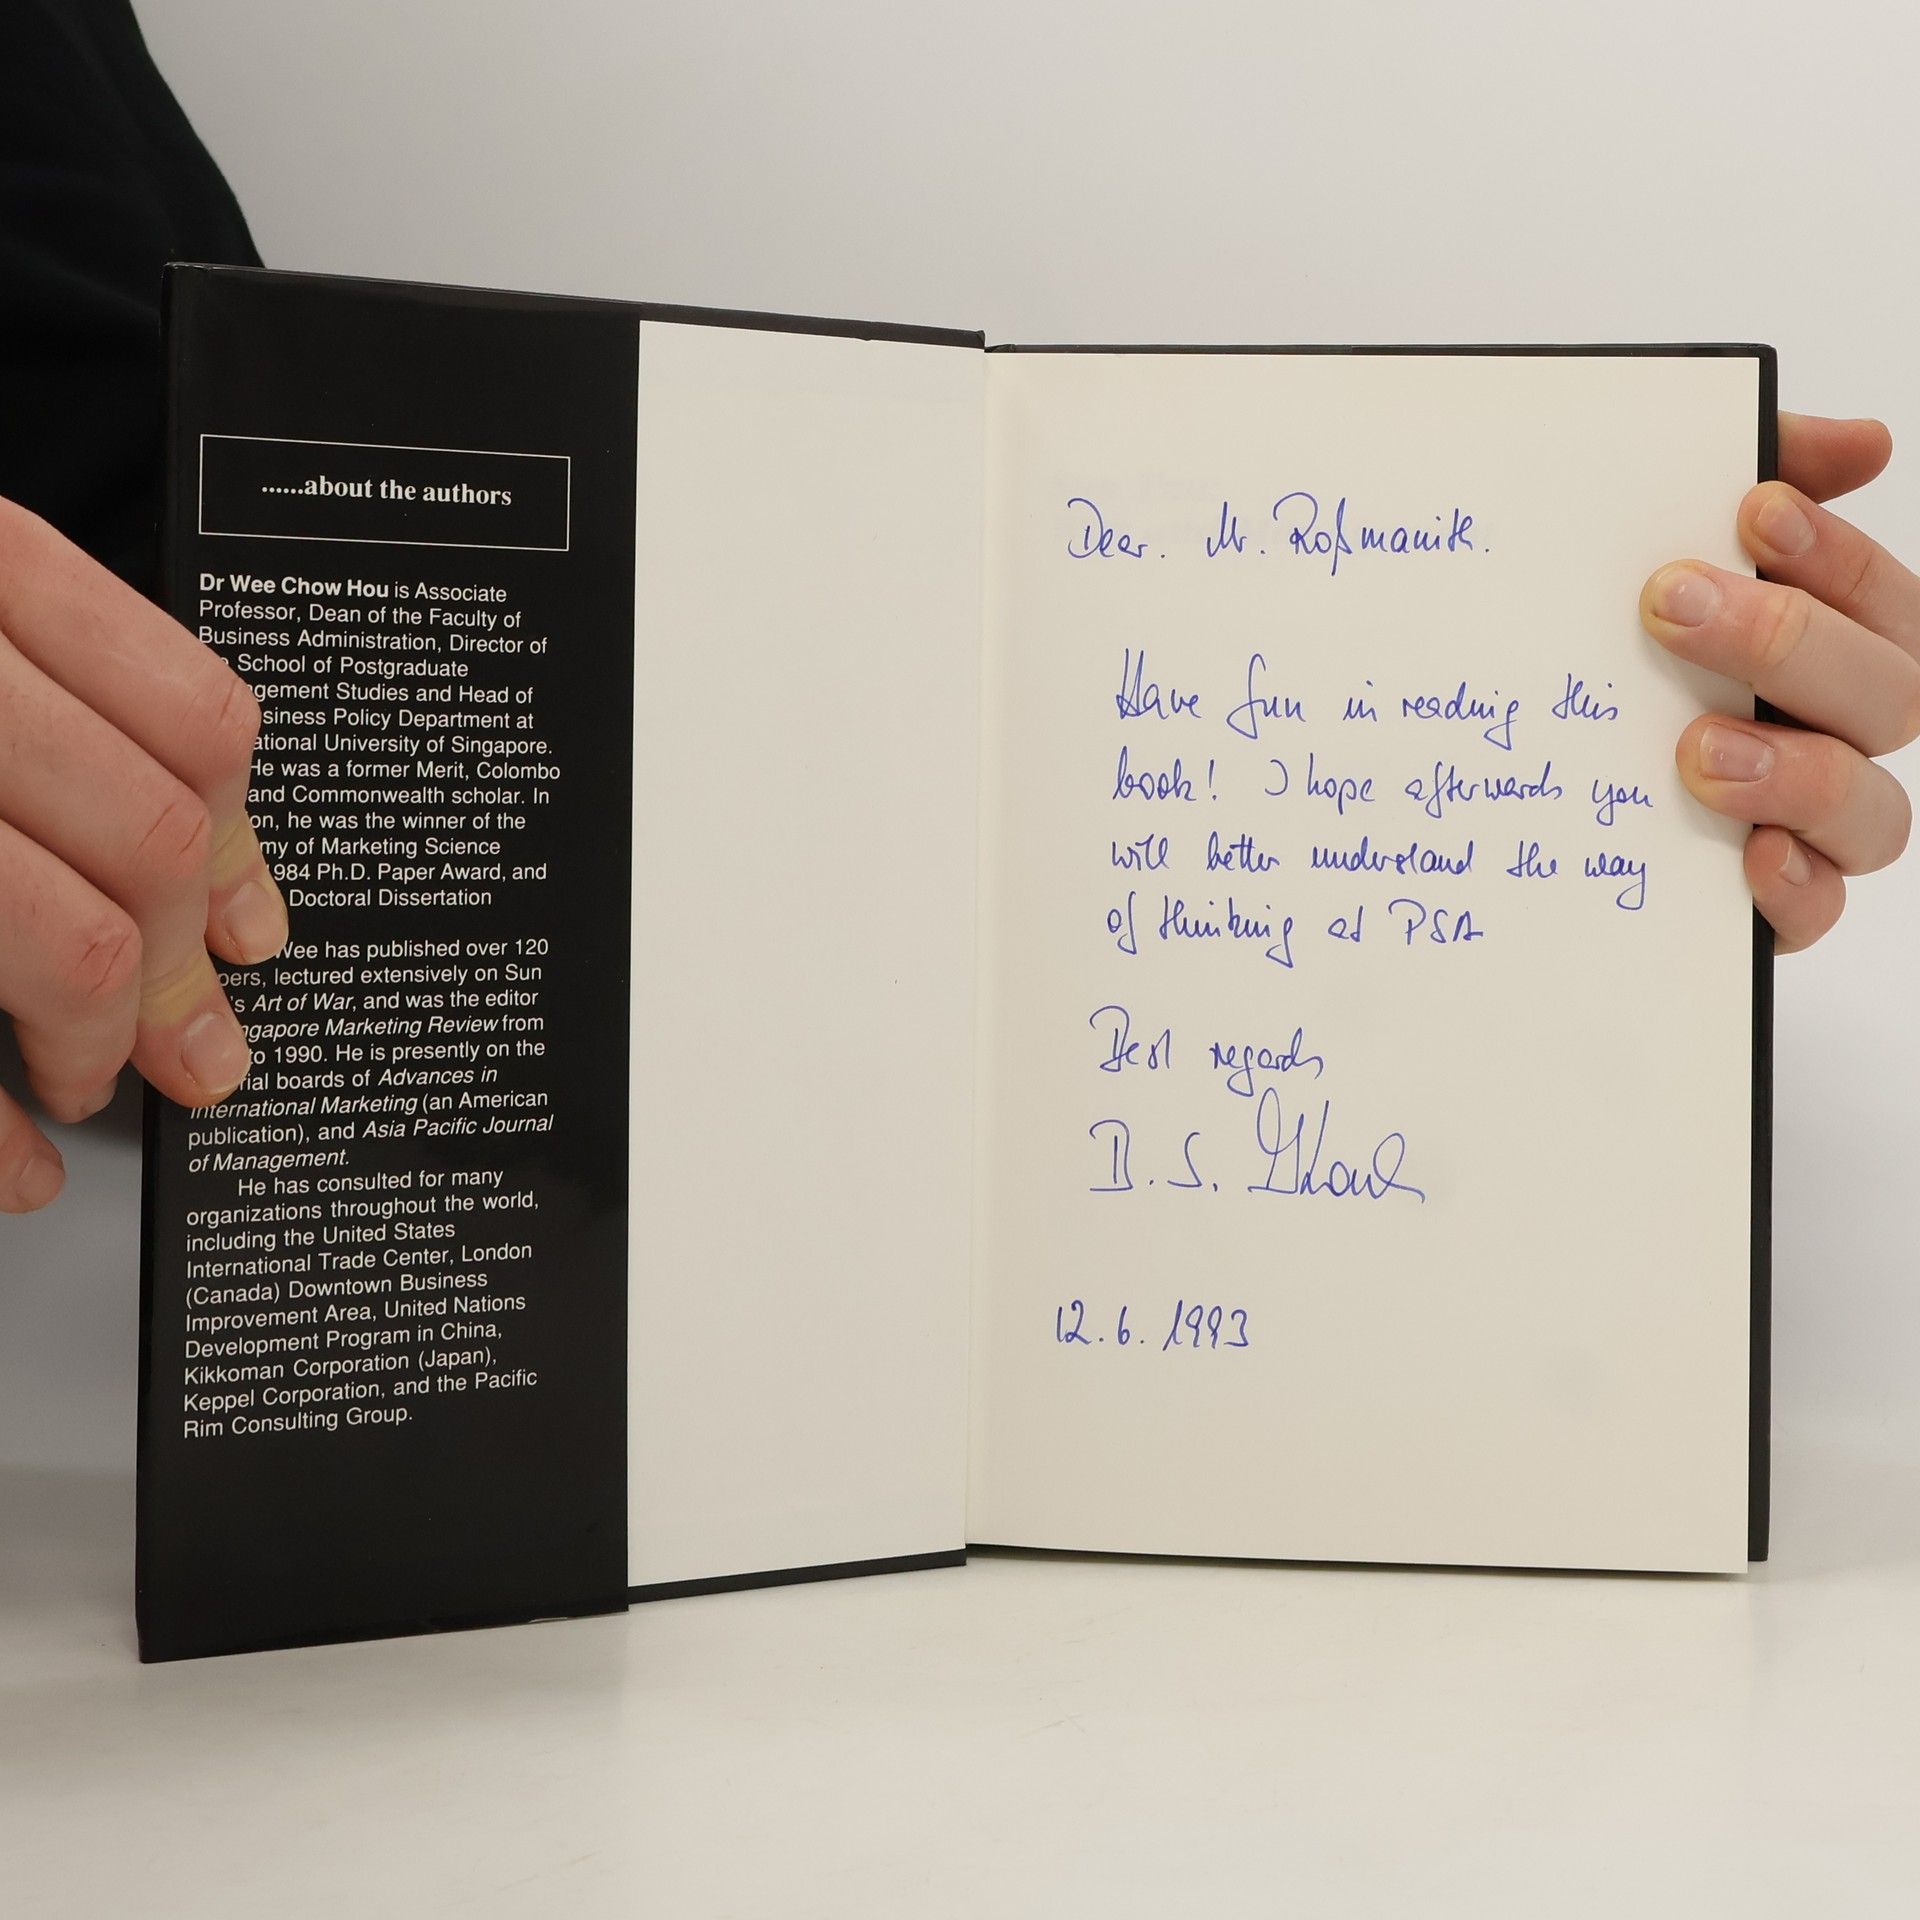 ......about the authors
Dr Wee Chow Hou is Associate
Professor, Dean of the Faculty of
Business Administration, Director of
School of Postgraduate
gement Studies and Head of
siness Policy Department at
ational University of Singapore.
He was a former Merit, Colombo
and Commonwealth scholar. In
on, he was the winner of the
my of Marketing Science
984 Ph.D. Paper Award, and
Doctoral Dissertation
Wee has published over 120
pers, lectured extensively on Sun
's Art of War, and was the editor
ngapore Marketing Review from
to 1990. He is presently on the
rial boards of Advances in
International Marketing (an American
publication), and Asia Pacific Journal
of Management.
He has consulted for many
organizations throughout the world,
including the United States
International Trade Center, London
(Canada) Downtown Business
Improvement Area, United Nations
Development Program in China,
Kikkoman Corporation (Japan),
Keppel Corporation, and the Pacific
Rim Consulting Group.
Dear. Mr. Roßmanith.
Have fun in reading this
book! I hope afterwards you
will better understand the way
of thinking at PSA
Best regards
B. S.
12. 6. 1993